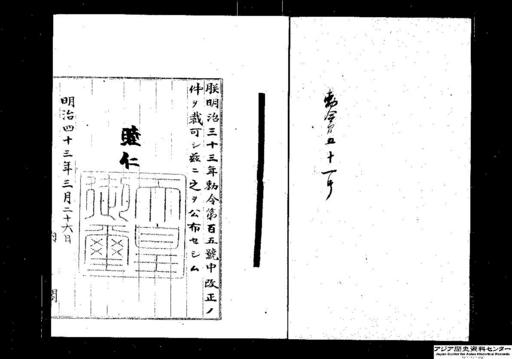 勅令第五十一号
朕明治三十三年勅令第百五號中改正ノ
件ヲ裁可シ茲ニ之ヲ公布セシム
睦仁
天皇
御璽
明治四十三年三月二十六日
内閣
アジア歴史資料センター
Japan Center for Asian Historical Records